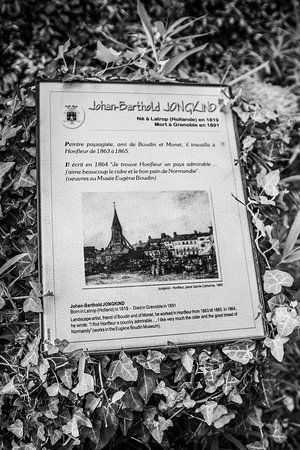 Johan-Barthold JONGKIND
Né à Latrop (Hollande) en 1819
Mort à Grenoble en 1891
Peintre paysagiste, ami de Boudin et Monet, il travailla à
Honfleur de 1863 à 1865.
Il écrit en 1864 "Je trouve Honfleur un pays admirable ...
j'aime beaucoup le cidre et le bon pain de Normandie".
(oeuvres au Musée Eugène Boudin)
Jongkind : Honfleur, place Sainte-Catherine, 1865
Johan-Barthold JONGKIND
Born in Latrop (Holland) in 1819 - Died in Grenoble in 1891
Landscape artist, friend of Boudin and of Monet, he worked in Honfleur from 1863 till 1865. In 1864,
he wrote: "I find Honfleur a country admirable ... I like very much the cider and the good bread of
Normandy" (works in the Eugène Boudin Museum).